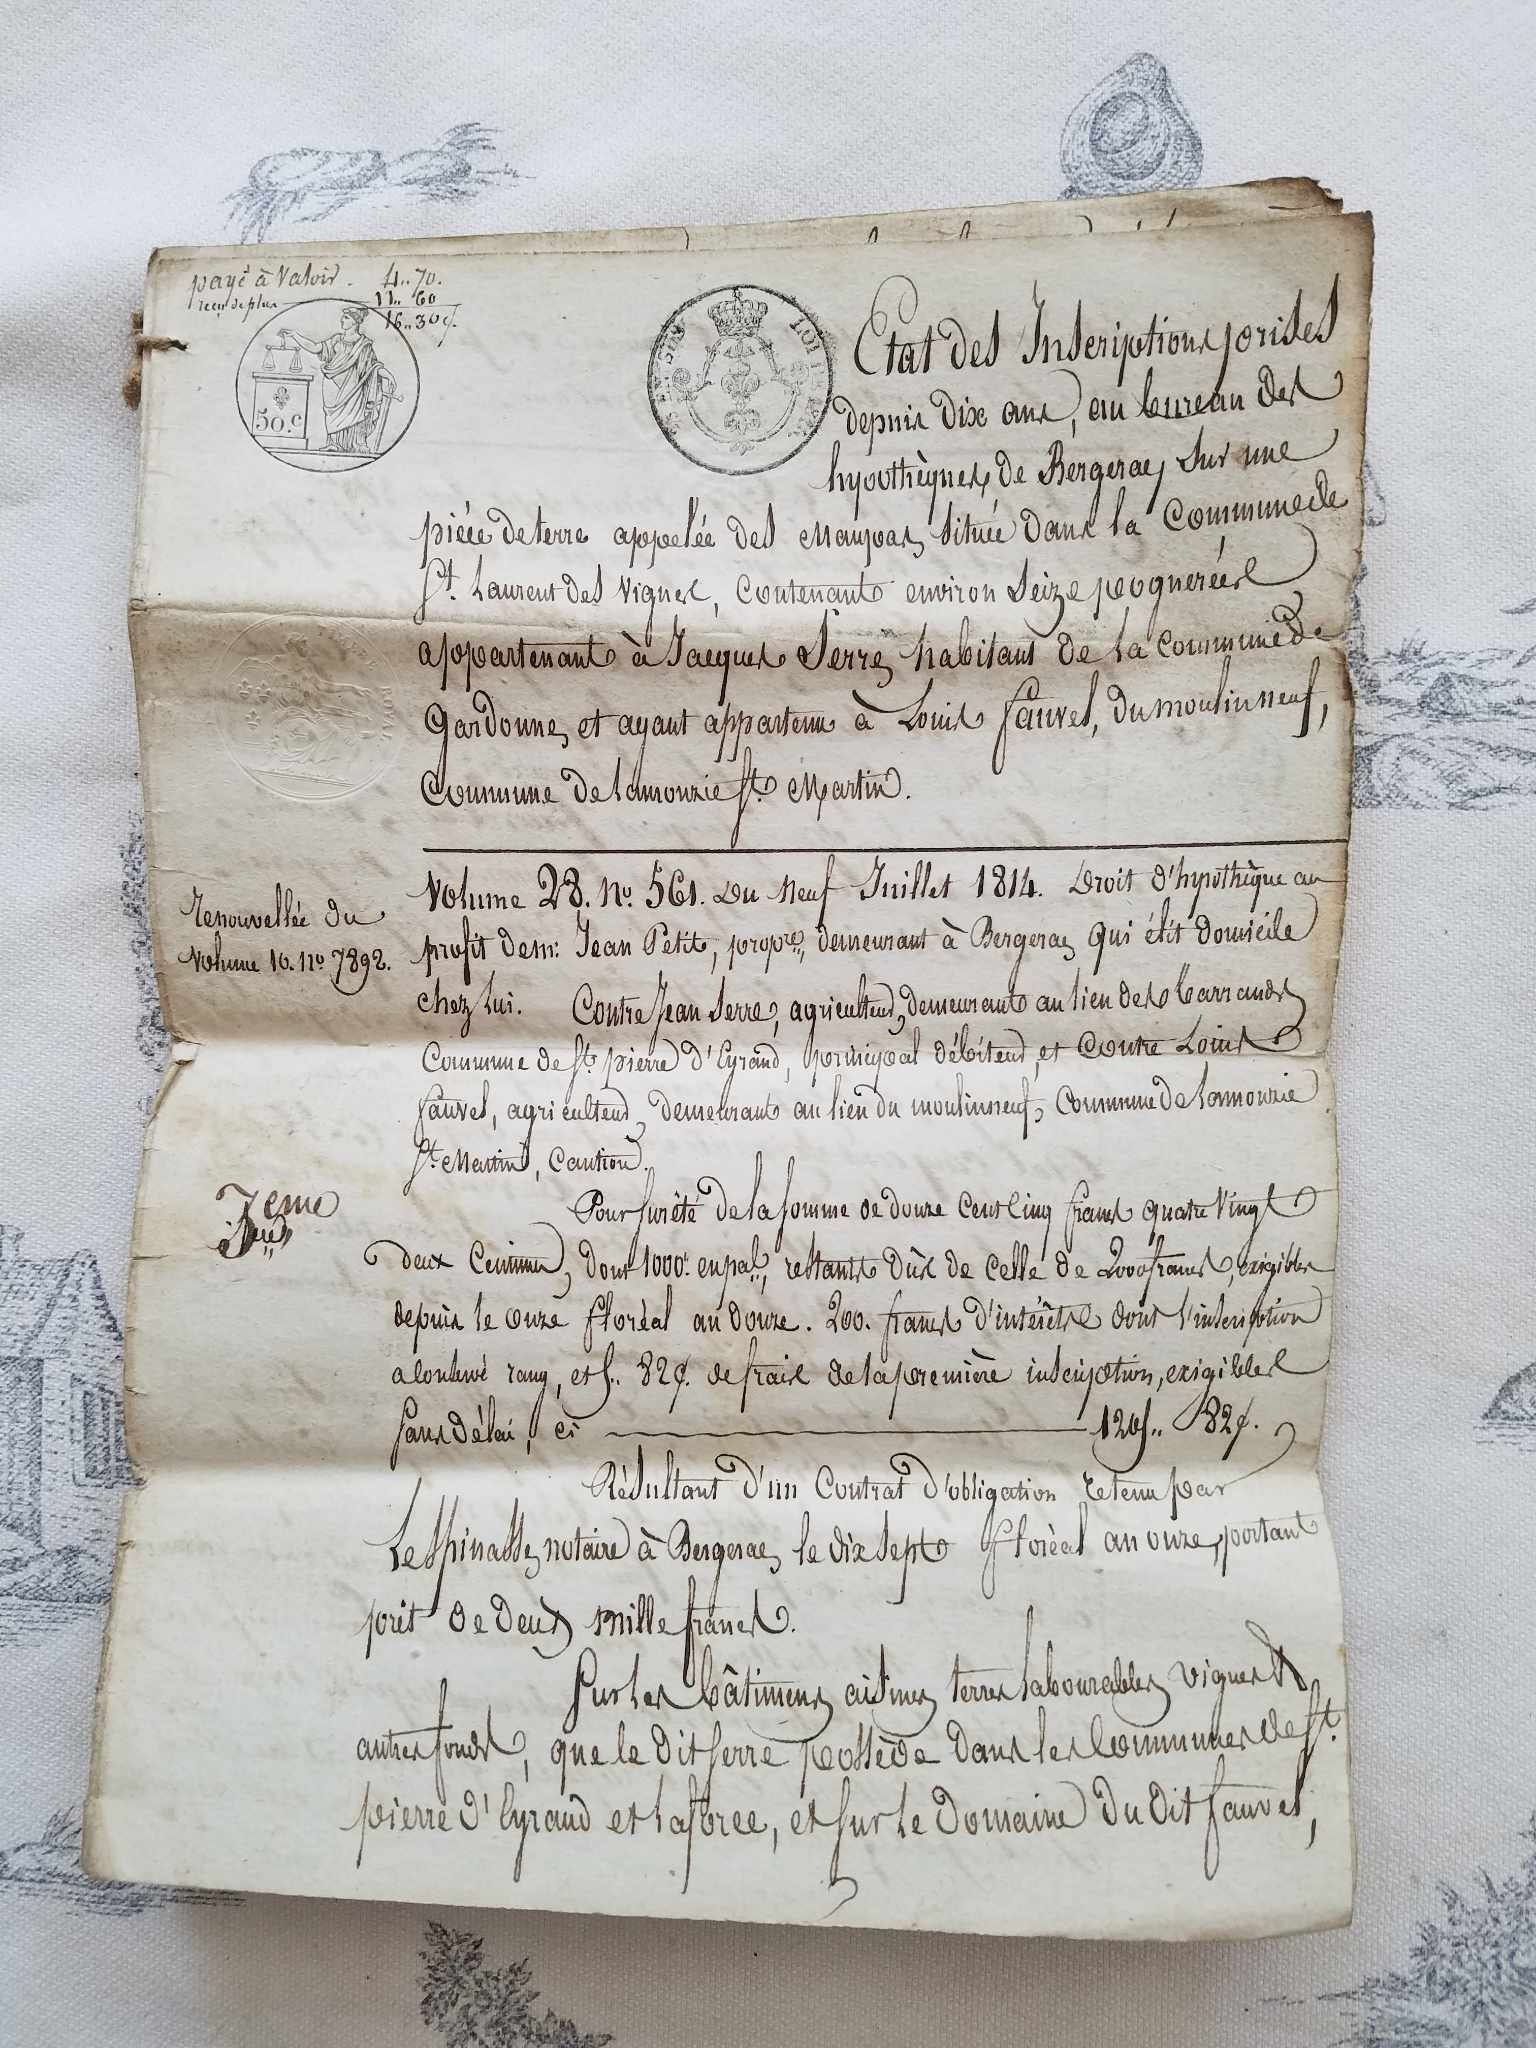 payé à Valoir. 4.. 70.
reçu de plus 11.. 60
16.. 30 ¢.
50.c
LOI
ROYAL
Etat des Inscriptions prises
depuis dix ans, au bureau des
hypothèques de Bergerac, Sur une
pièce de terre appelée des Maupas, Située dans la Commune de
St. Laurent des Vignes, Contenant environ Seize pognerées
appartenant à Jacques Serre, habitant de la Commune de
Gardonne, et ayant appartenu à Louis Fauvel, du moulin neuf,
Commune de Lamonzie St. Martin.
Renouvellée du
Volume 10. no. 7892.
Volume 28. no. 561. Du Neuf Juillet 1814. Droit d'hypothèque au
profit de m: Jean Petit, propre., demeurant à Bergerac, qui élit domicile
chez lui. Contre Jean Serre, agriculteur, demeurant au lieu des Carrands,
Commune de St. pierre d'Eyraud, principal débiteur, et Contre Louis
Fauvel, agriculteur, demeurant au lieu du moulin neuf, Commune de Lamonzie
St. Martin, Caution.
7eme
Pour Sureté de la Somme de douze Cent Cinq francs quatre Vingt
deux Centimes, dont 1000f. en pal., restants dûs de Celle de 2000 francs, exigibles
depuis le onze floréal an douze. 200. francs d'intérêts dont l'inscription
a Conservé rang, et 5.. 82¢. de frais de la première inscription, exigibles
Sans délai, Ci 1205.. 82¢.
Résultant d'un Contrat d'obligation retenu par
Lespinasse, notaire à Bergerac, le dix Sept floréal an onze, portant
prêt de Deux mille francs.
Sur les bâtimens, aisines, terres labourables, vignes &
autres fonds, que le dit Serre possède dans les Communes de St.
pierre d'Eyraud et Laforce, et Sur le Domaine du dit Fauvel,